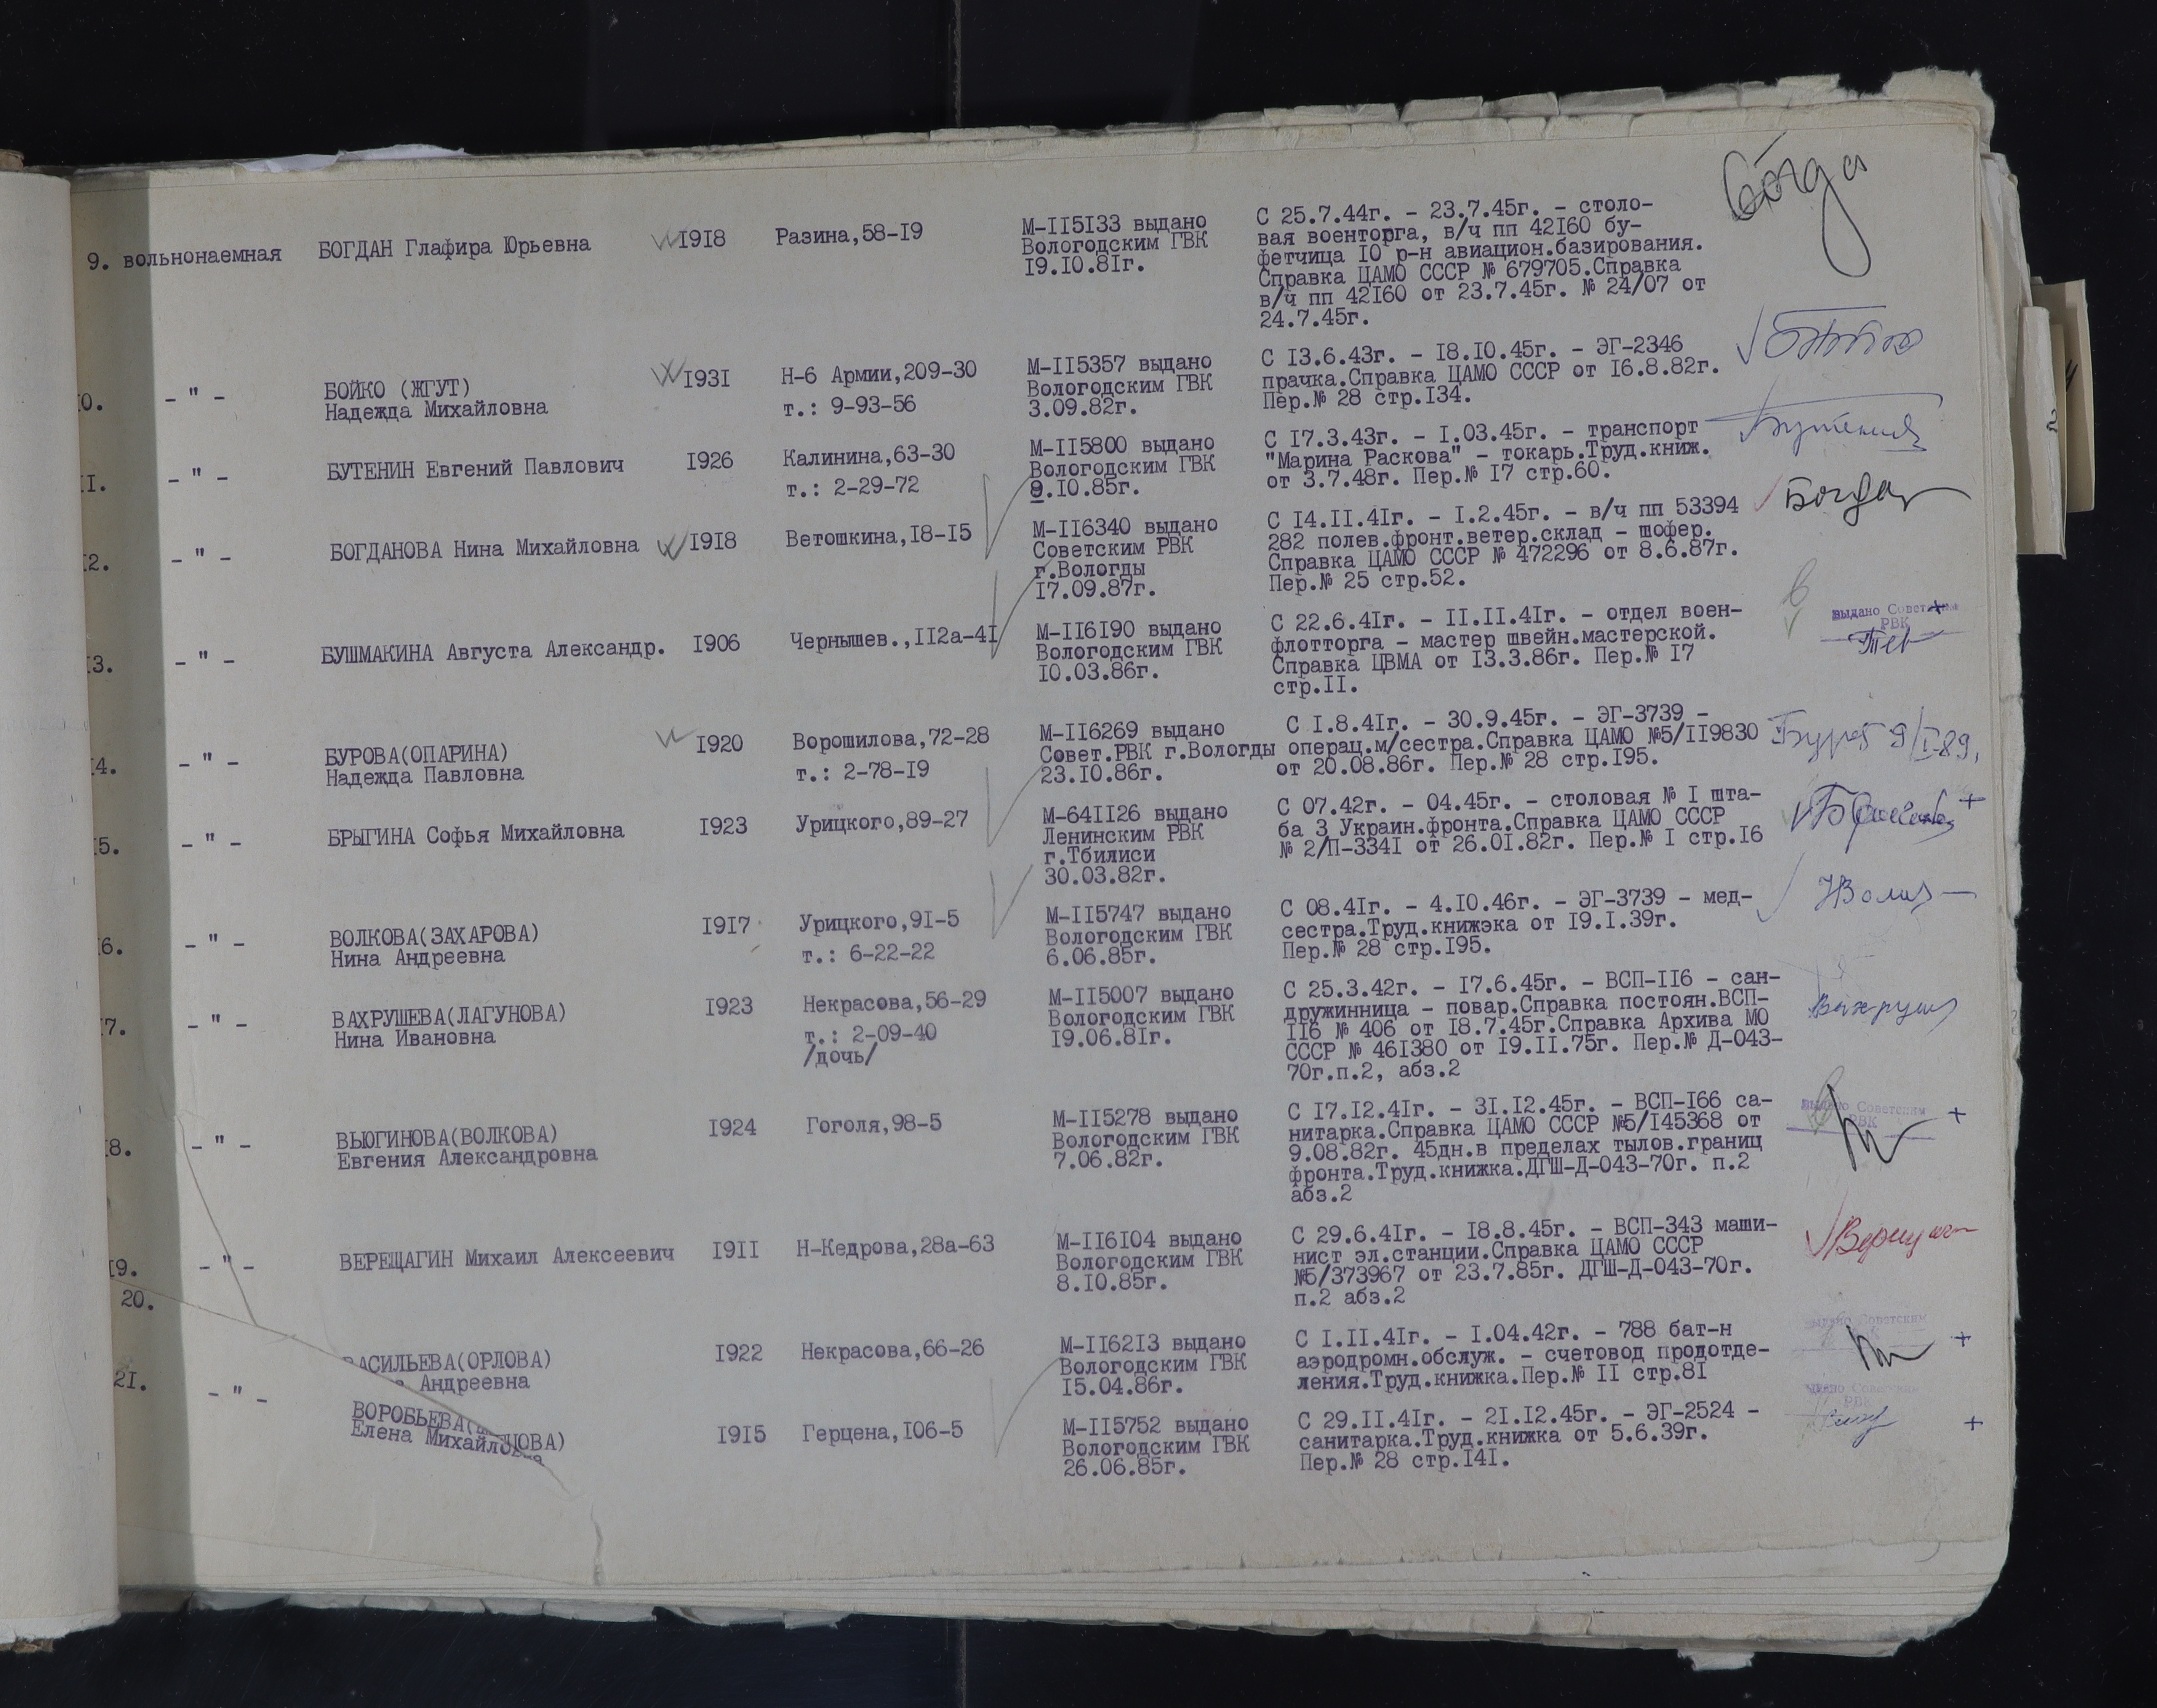 9. вольнонаемная БОГДАН Глафира Юрьевна I9I8 Разина,58-I9
М-II5I33 выдано
Вологодским ГВК
I9.I0.8Iг.
С 25.7.44г. - 23.7.45г. - столо-
вая военторга, в/ч пп 42I60 бу-
фетчица I0 р-н авиацион.базирования.
Справка ЦАМО СССР № 679705.Справка
в/ч пп 42I60 от 23.7.45г. № 24/07 от
24.7.45г.
0. - " - БОЙКО (ЖГУТ)
Надежда Михайловна
I93I
Н-6 Армии,209-30
т.: 9-93-56
М-II5357 выдано
Вологодским ГВК
3.09.82г.
С I3.6.43г. - I8.I0.45г. - ЭГ-2346
прачка.Справка ЦАМО СССР от I6.8.82г.
Пер.№ 28 стр.I34.
II. - " - БУТЕНИН Евгений Павлович I926
Калинина,63-30
т.: 2-29-72
М-II5800 выдано
Вологодским ГВК
9.I0.85г.
С I7.3.43г. - I.03.45г. - транспорт
"Марина Раскова" - токарь.Труд.книж.
от 3.7.48г. Пер.№ I7 стр.60.
Бутенин
I2. - " - БОГДАНОВА Нина Михайловна I9I8 Ветошкина,I8-I5
М-II6340 выдано
Советским РВК
г.Вологды
I7.09.87г.
С I4.II.4Iг. - I.2.45г. - в/ч пп 53394
282 полев.фронт.ветер.склад - шофер.
Справка ЦАМО СССР № 472296 от 8.6.87г.
Пер.№ 25 стр.52.
Богдан
I3. - " - БУШМАКИНА Августа Александр. I906 Чернышев.,II2а-4I
М-II6I90 выдано
Вологодским ГВК
I0.03.86г.
С 22.6.4Iг. - II.II.4Iг. - отдел воен-
флотторга - мастер швейн.мастерской.
Справка ЦВМА от I3.3.86г. Пер.№ I7
стр.II.
выдано Советским
РВК
I4. - " - БУРОВА(ОПАРИНА)
Надежда Павловна
I920
Ворошилова,72-28
т.: 2-78-I9
М-II6269 выдано
Совет.РВК г.Вологды
23.I0.86г.
С I.8.4Iг. - 30.9.45г. - ЭГ-3739 -
операц.м/сестра.Справка ЦАМО №5/II9830
от 20.08.86г. Пер.№ 28 стр.I95.
9/I-89.
I5. - " - БРЫГИНА Софья Михайловна I923 Урицкого,89-27
М-64II26 выдано
Ленинским РВК
г.Тбилиси
30.03.82г.
С 07.42г. - 04.45г. - столовая № I шта-
ба 3 Украин.фронта.Справка ЦАМО СССР
№ 2/П-334I от 26.0I.82г. Пер.№ I стр.I6
+
6. - " - ВОЛКОВА(ЗАХАРОВА)
Нина Андреевна
I9I7
Урицкого,9I-5
т.: 6-22-22
М-II5747 выдано
Вологодским ГВК
6.06.85г.
С 08.4Iг. - 4.I0.46г. - ЭГ-3739 - мед-
сестра.Труд.книжэка от I9.I.39г.
Пер.№ 28 стр.I95.
7. - " - ВАХРУШЕВА(ЛАГУНОВА)
Нина Ивановна
I923
Некрасова,56-29
т.: 2-09-40
/дочь/
М-II5007 выдано
Вологодским ГВК
I9.06.8Iг.
С 25.3.42г. - I7.6.45г. - ВСП-II6 - сан-
дружинница - повар.Справка постоян.ВСП-
II6 № 406 от I8.7.45г.Справка Архива МО
СССР № 46I380 от I9.II.75г. Пер.№ Д-043-
70г.п.2, абз.2
Вахруш
I8. - " - ВЬЮГИНОВА(ВОЛКОВА)
Евгения Александровна
I924
Гоголя,98-5
М-II5278 выдано
Вологодским ГВК
7.06.82г.
С I7.I2.4Iг. - 3I.I2.45г. - ВСП-I66 са-
нитарка.Справка ЦАМО СССР №5/I45368 от
9.08.82г. 45дн.в пределах тылов.границ
фронта.Труд.книжка.ДГШ-Д-043-70г. п.2
абз.2
выдано Советским
РВК
+
I9. - " - ВЕРЕЩАГИН Михаил Алексеевич I9II Н-Кедрова,28а-63
М-II6I04 выдано
Вологодским ГВК
8.I0.85г.
С 29.6.4Iг. - I8.8.45г. - ВСП-343 маши-
нист эл.станции.Справка ЦАМО СССР
№5/373967 от 23.7.85г. ДГШ-Д-043-70г.
п.2 абз.2
20.
ВАСИЛЬЕВА(ОРЛОВА)
Андреевна
I922
Некрасова,66-26
М-II62I3 выдано
Вологодским ГВК
I5.04.86г.
С I.II.4Iг. - I.04.42г. - 788 бат-н
аэродромн.обслуж. - счетовод продотде-
ления.Труд.книжка.Пер.№ II стр.8I
выдано Советским
+
2I. - " - ВОРОБЬЕВА(
Елена Михайловна
I9I5
Герцена,I06-5
М-II5752 выдано
Вологодским ГВК
26.06.85г.
С 29.II.4Iг. - 2I.I2.45г. - ЭГ-2524 -
санитарка.Труд.книжка от 5.6.39г.
Пер.№ 28 стр.I4I.
выдано Советским
РВК
+